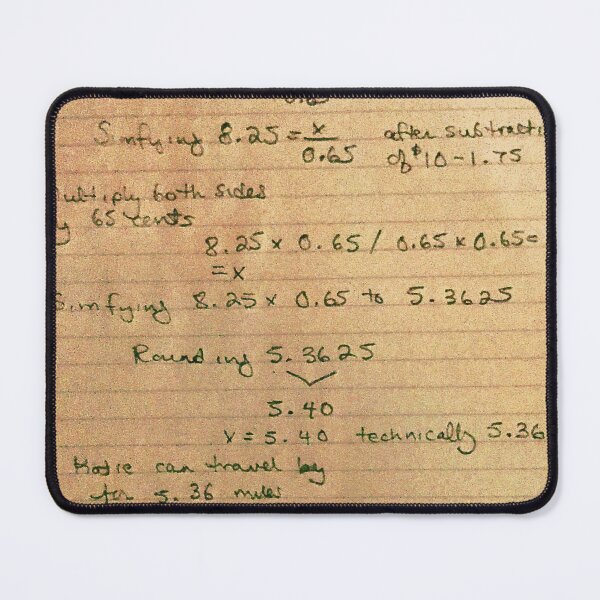 Simfying 8.25 = x/0.65 after subtracti
of $10-1.75
ultiply both sides
y 65 cents
8.25 x 0.65 / 0.65 x 0.65=
= x
Simfying 8.25 x 0.65 to 5.3625
Rounding 5.3625
5.40
x = 5.40 technically 5.36
Katie can travel by
for 5.36 miles